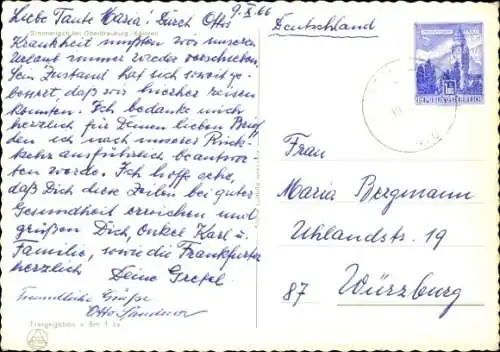 9. X. 66
Liebe Tante Maria! Durch Ottos
Simmerlach bei Oberdrauburg, Kärnten
Krankheit mußten wir unseren
Urlaub immer wieder verschieben.
Sein Zustand hat sich soweit ge-
bessert, daß wir hierher reisen
konnten. Ich bedanke mich
herzlich für Deinen lieben Brief
den ich nach unserer Rück-
kehr ausführlich beantwor-
ten werde. Ich hoffe sehr,
daß Dich diese Zeilen bei guter
Gesundheit erreichen und
grüßen Dich, Onkel Karl u.
Familie, sowie die Frankfurter
herzlich Deine Gretel.
Freundliche Grüße
Otto
Deutschland
REPUBLIK ÖSTERREICH
Frau
Maria Bergmann
Uhlandstr. 19
87 Würzburg